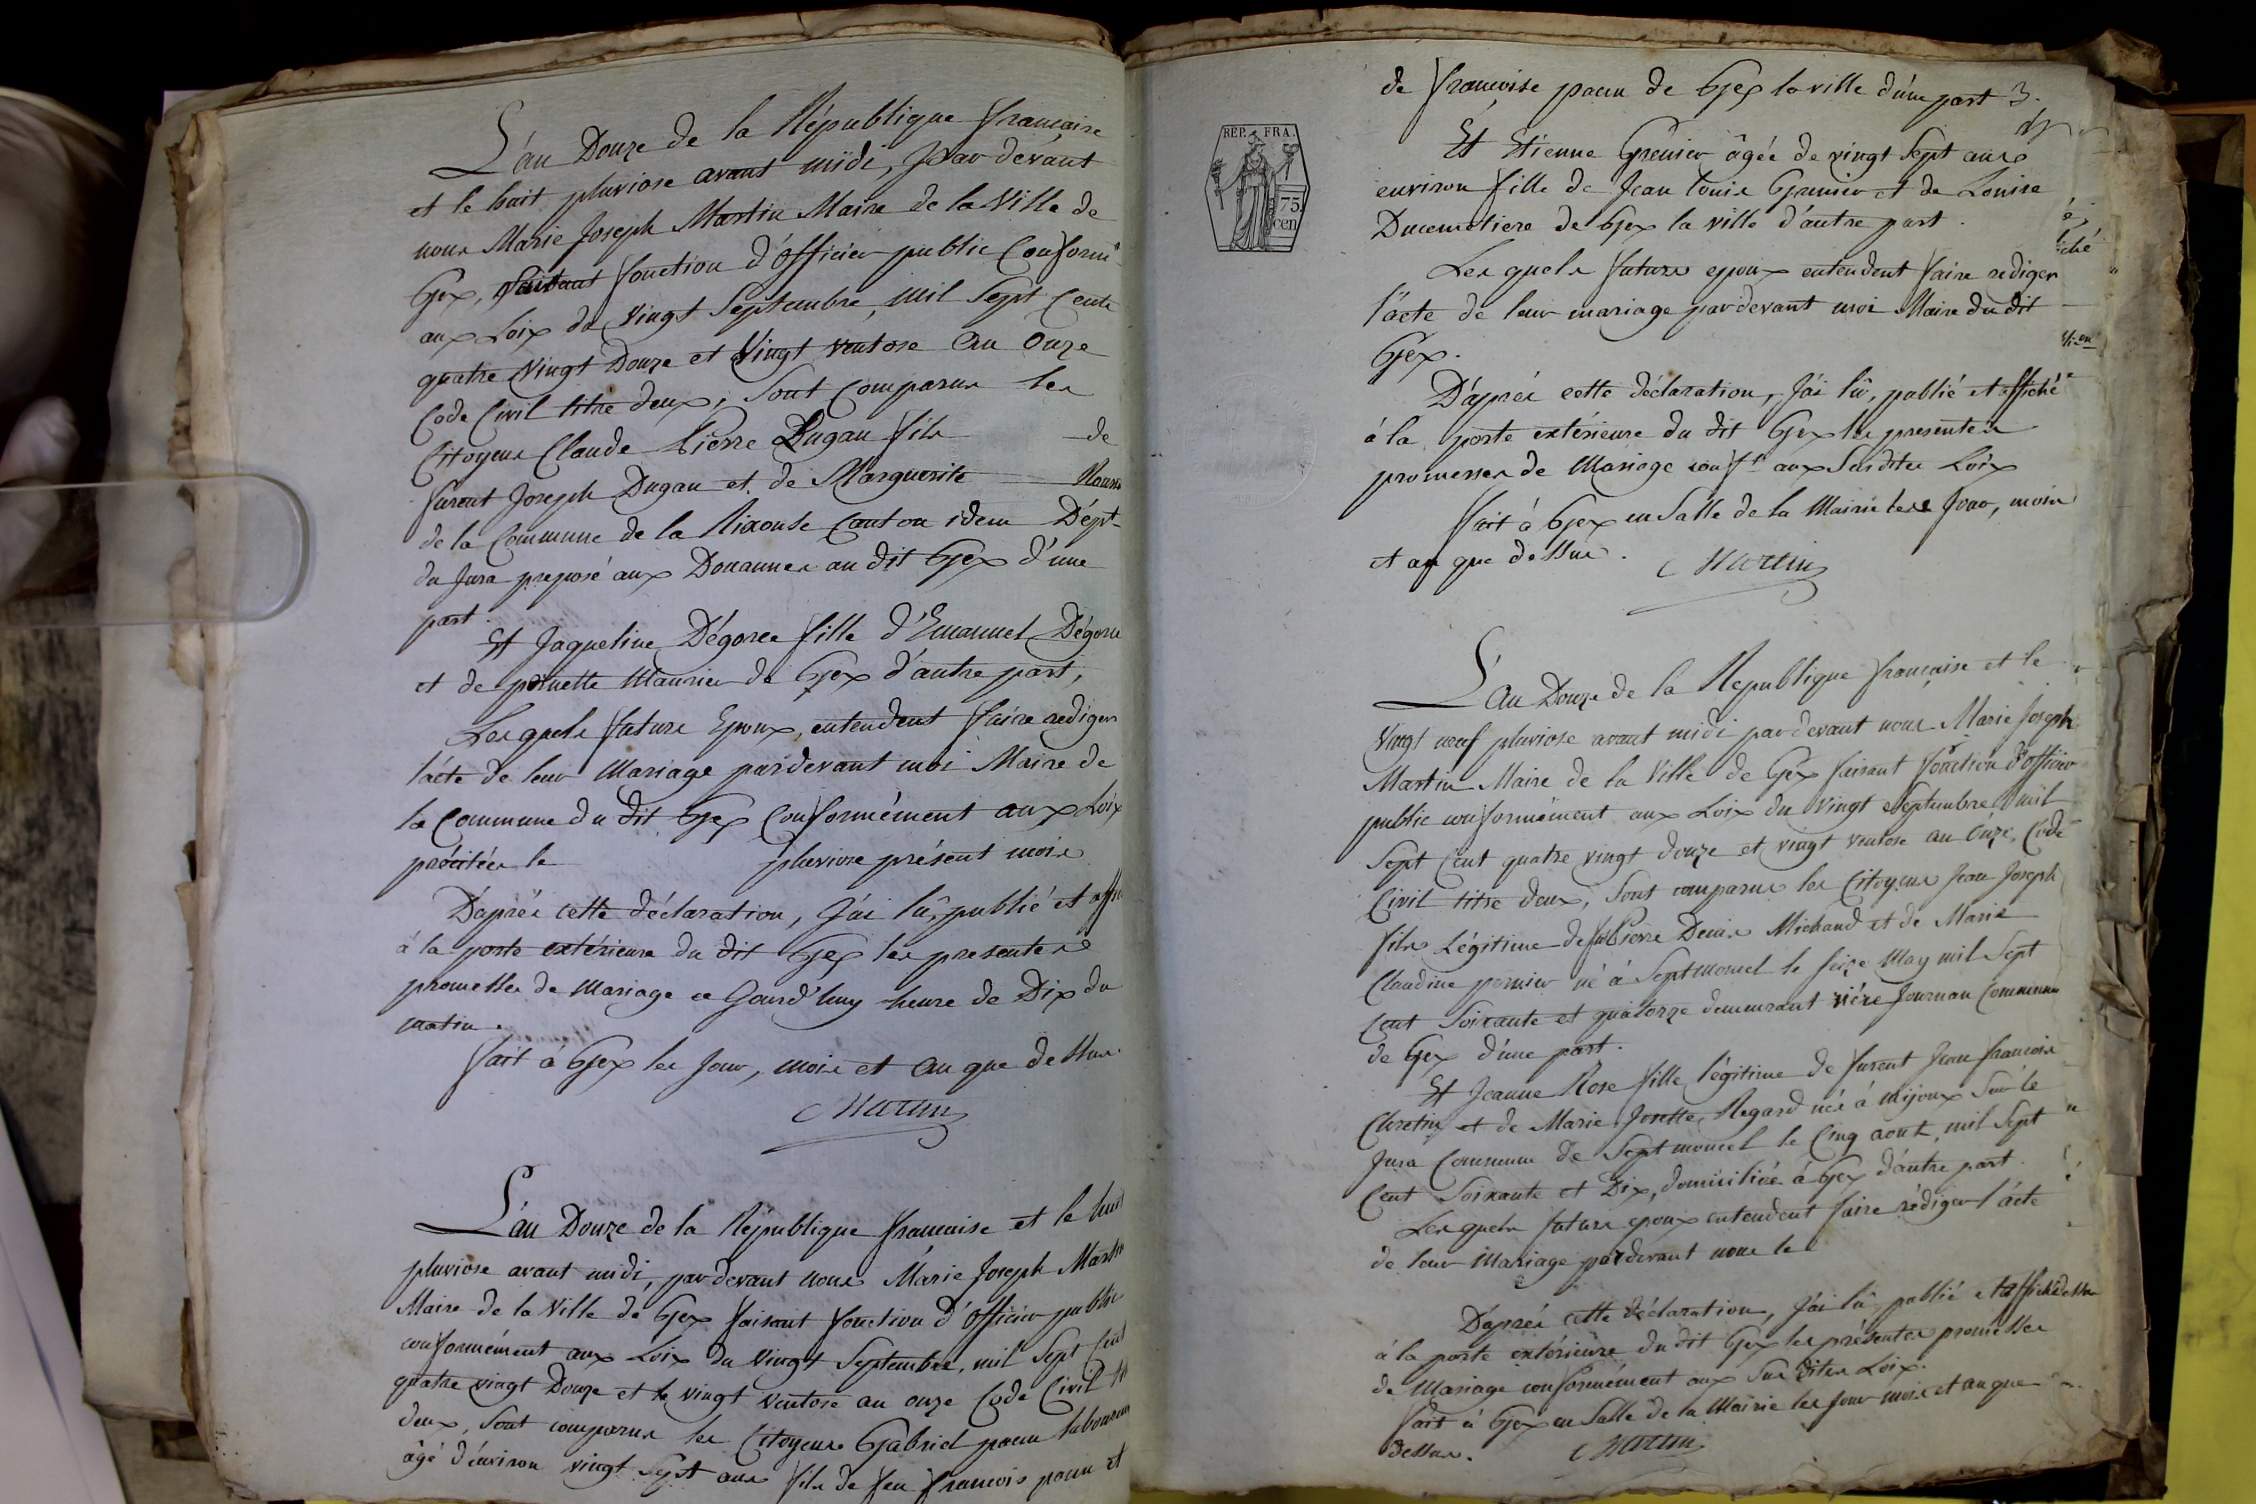 L'an Douze de la République française
et le huit pluviose avant midi, Par devant
nous Marie Joseph Martin Maire de la Ville de
Gex, faisant fonction d'officier public Conformt
aux Loix du Vingt Septembre, mil Sept Cents
quatre Vingt Douze et Vingt ventose an Onze
Code Civil titre deux, Sont Comparus les
Citoyens Claude Pierre Dugau fils de
furent Joseph Dugau et de Marguerite
de la Commune de la Rixouse Canton idem Dépt
du Jura preposé aux Douannes au dit Gex d'une
part.
Et Jaqueline Dégoree fille d'Emanuel
et de pernette Maurier de Gex d'autre part,
Les quels futurs Epoux, entendent faire rediger
l'acte de leur Mariage pardevant moi Maire de
la Commune du dit Gex Conformément aux Loix
précitées le pluviose présent mois
D'après cette déclaration, J'ai lû, publié et
à la porte extérieure du dit Gex les presentes
promesses de Mariage ce Jourd'huy heure de Dix du
matin.
fait à Gex les Jour, mois et an que dessus.
Martin
L'an Douze de la République française et le huit
pluviose avant midi, par devant nous Marie Joseph Martin
Maire de la Ville de Gex faisant fonction d'officier public
conformément aux Loix du Vingt Septembre, mil Sept Cent
quatre vingt Douze et le vingt Ventose an onze Code Civil
deux, Sont comparus les Citoyens Gabriel panu laboureur
âgé d'environ vingt Sept ans fils de feu françois panu et
de françoise panu de Gex la ville d'une part 3.
REP. FRA.
75
cen
Et Etienne Grenier âgée de vingt Sept ans
environ fille de Jean Louis Grenier et de Louise
Ducimetiere de Gex la ville d'autre part.
Les quels futurs epoux entendent faire rediger
l'acte de leur mariage pardevant moi Maire du dit
Gex.
D'après cette déclaration, J'ai lû, publié et affiché
à la porte extérieure du dit Gex les presentes
promesses de Mariage conft aux Susdites Loix
fait à Gex en Salle de la Mairie les Jour, mois
et an que dessus.
Martin
L'an Douze de la Republique française et le
Vingt neuf pluviose avant midi par devant nous Marie Joseph
Martin Maire de la Ville de Gex faisant fonction d'officier
public conformément aux Loix du vingt Septembre mil
Sept Cent quatre vingt douze et vingt ventose an Onze, Code
Civil titre deux, Sont comparus les Citoyens Jean Joseph
fils Légitime de feu Pierre Denis Michaud et de Marie
Claudine pernier né à Septmoncel le seize May mil Sept
Cent Soixante et quatorze demeurant Commune
de Gex d'une part.
Et Jeanne Rose fille légitime de furent Jean françois
Chretin et de Marie Josette Regard née à Mijoux Sur le
Jura Commune de Septmoncel le Cinq aout, mil Sept
Cent Soixante et Dix, domiciliée à Gex d'autre part.
Les quels futurs epoux entendent faire rédiger l'acte
de leur Mariage pardevant nous le
D'après cette déclaration, J'ai lû, publié et affiché
à la porte extérieure du dit Gex les présentes promesses
de Mariage conformément aux Sus dites Loix.
fait à Gex en Salle de la Mairie les Jour mois et an que
dessus.
Martin